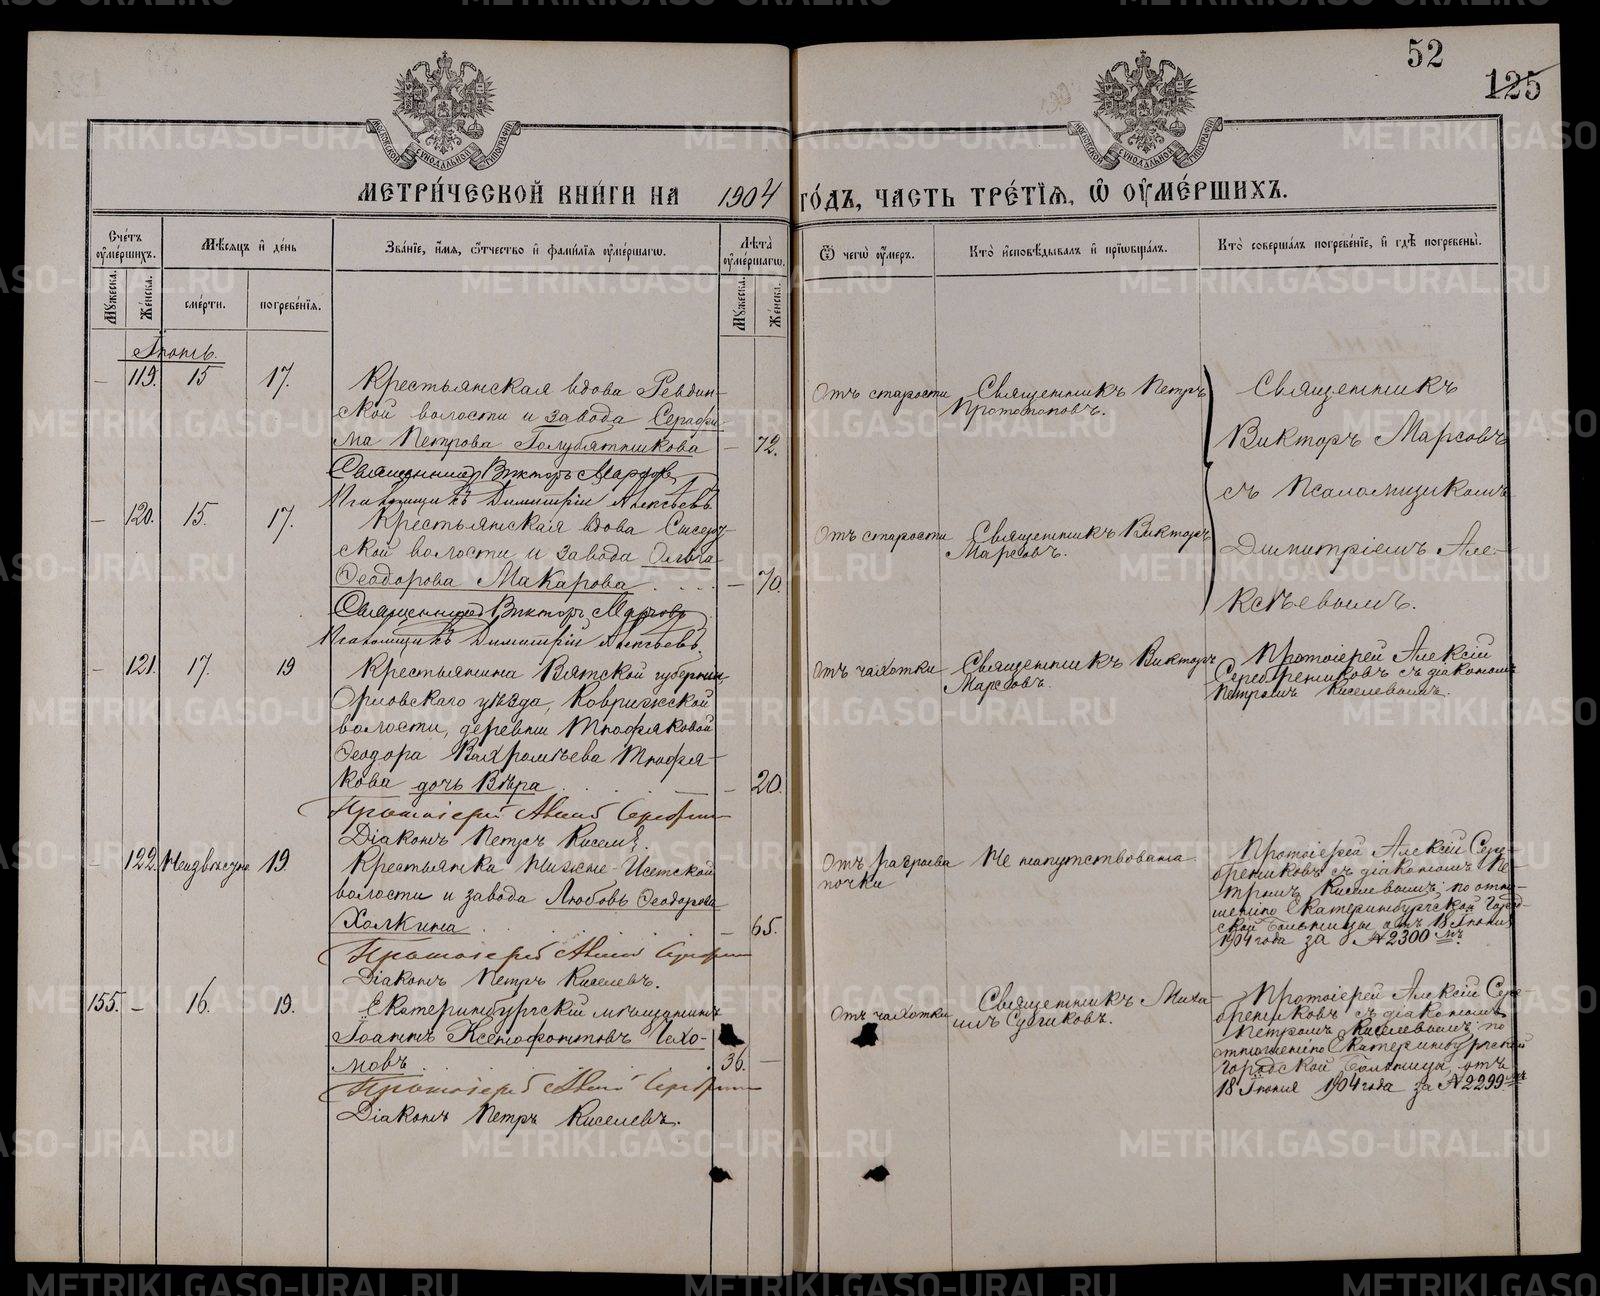 52
125
МЕТРИ́ЧЕСКОЙ КНИ́ГИ НА 1904 ГО́ДЪ, ЧАСТЬ ТРЕ́ТІЯ, Ѽ ОУМЕ́РШИХЪ.
Счетъ оумершихъ.
Мѣсяцъ и день
Званіе, имя, отчество и фамилія оумершагѡ.
Лѣта оумершагѡ.
Ѿ чегѡ оумеръ.
Кто исповѣдывалъ и пріѡбщалъ.
Кто совершалъ погребеніе, и гдѣ погребены.
Мужеска.
Женска.
смерти.
погребенія.
Мужеска.
Женска.
Іюнь.
— 119. 15 17.
Крестьянская вдова Ревдин-
ской волости и завода Серафи-
ма Петрова Голубятникова — 72.
Священникъ Викторъ Марсовъ
Псаломщикъ Димитрій Алексѣевъ
Отъ старости
Священникъ Петръ
Протопоповъ.
Священникъ
Викторъ Марсовъ
съ псаломщикомъ
Димитріемъ Але-
ксѣевымъ.
— 120. 15. 17.
Крестьянская вдова Сысерт-
ской волости и завода Ольга
Ѳеодорова Макарова — 70.
Священникъ Викторъ Марсовъ
Псаломщикъ Димитрій Алексѣевъ.
Отъ старости
Священникъ Викторъ
Марсовъ.
— 121. 17. 19
Крестьянина Вятской губерніи
Орловскаго уѣзда, Коврижской
волости, деревни
Ѳеодора Вахромѣева
кова дочь Вѣра — 20.
Протоіерей
Діаконъ Петръ
Отъ чахотки
Священникъ Викторъ
Марсовъ.
Протоіерей Алексій
Серебрениковъ съ діакономъ
Петромъ Киселевымъ.
— 122. Неизвѣстно 19.
Крестьянка Нижне-Исетской
волости и завода Любовь Ѳеодорова
Халкина — 65.
Протоіерей
Діаконъ Петръ Киселевъ.
Отъ
почки
Не напутствована.
Протоіерей Алексій Сере-
брениковъ съ діакономъ Пе-
тромъ Киселевымъ по отно-
шенію Екатеринбургской Город-
ской Больницы отъ 18 Іюня
1904 года за № 2300мъ.
155. — 16. 19.
Екатеринбургскій мѣщанинъ
Іоаннъ Ксенофонтовъ Чехо-
мовъ 36. —
Протоіерей
Діаконъ Петръ Киселевъ.
Отъ чахотки
Священникъ Миха-
илъ
Протоіерей Алексій Сере-
брениковъ съ діакономъ
Петромъ Киселевымъ по
отношенію Екатеринбургской
Городской Больницы отъ
18 Іюня 1904 года за № 2299мъ
METRIKI.GASO-URAL.RU